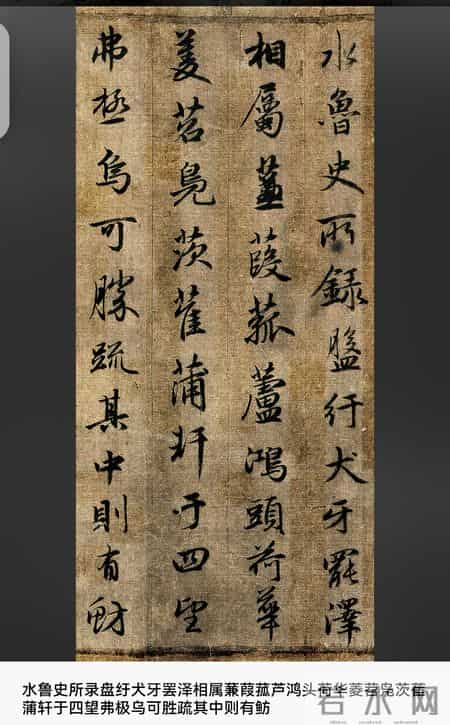 水魯史所録盤紆犬牙罷澤
相屬蒹葭菰蘆鴻頭荷華
菱茗鳧茨萑蒲軒于四望
弗極烏可勝疏其中則有魴
水鲁史所录盘纡犬牙罢泽相属蒹葭菰芦鸿头荷华菱茗凫茨萑
蒲轩于四望弗极乌可胜疏其中则有鲂